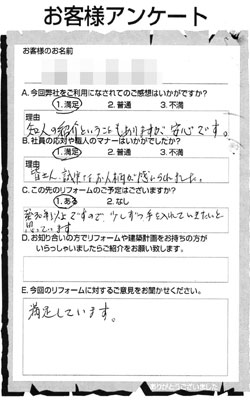 お客様アンケート
お客様のお名前
A. 今回弊社をご利用になされてのご感想はいかがですか?
1. 満足 2. 普通 3. 不満
理由
知人の紹介ということもありますが、安心です。
B. 社員の応対や職人のマナーはいかがでしたか?
1. 満足 2. 普通 3. 不満
理由
皆さん、誠実なお人柄が感じられました。
C. この先のリフォームのご予定はございますか?
1. ある 2. なし
ですので、少しずつ手を入れていきたいと
思っています
D. お知り合いの方でリフォームや建築計画をお持ちの方が
いらっしゃいましたらご紹介をお願い致します。
E. 今回のリフォームに対するご意見をお聞かせください。
満足しています。
ありがとうございました